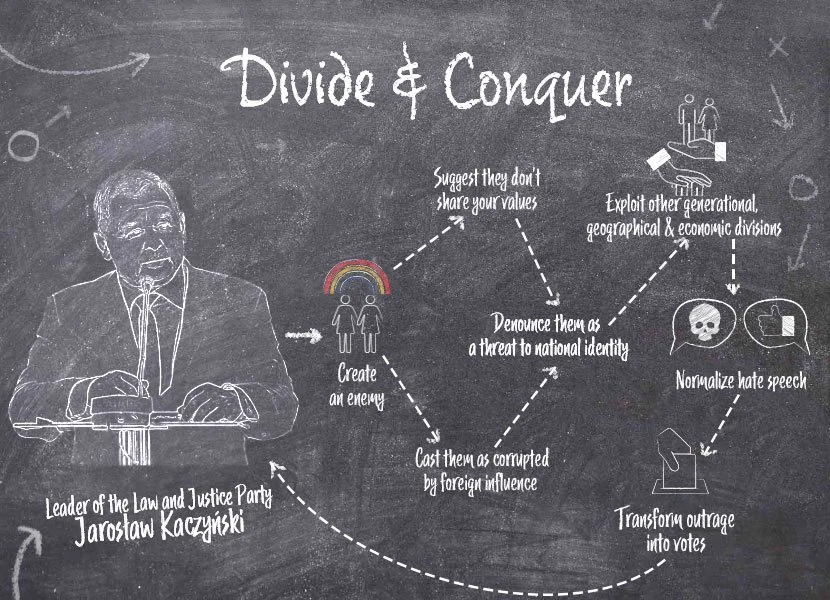 Divide & Conquer
Suggest they don't
share your values
Exploit other generational,
geographical & economic divisions
Denounce them as
a threat to national identity
Create
an enemy
Normalize hate speech
Cast them as corrupted
by foreign influence
Leader of the Law and Justice Party
Jarosław Kaczyński
Transform outrage
into votes